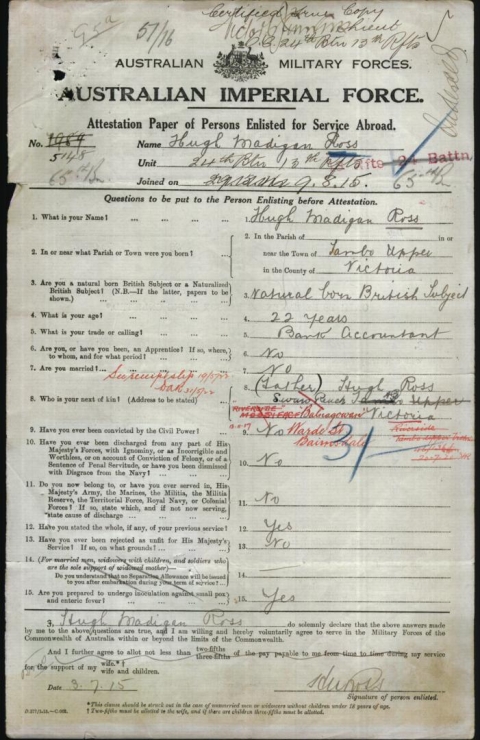 57/16
Certified True Copy
24th Btn 13th Rfts
AUSTRALIAN MILITARY FORCES.
AUSTRALIAN IMPERIAL FORCE.
Attestation Paper of Persons Enlisted for Service Abroad.
No. Name Hugh Madigan Ross
Unit 24th Btn 13th Rfts 24 Battn
Joined on 9.8.15.
Questions to be put to the Person Enlisting before Attestation.
1. What is your Name? ... 1. Hugh Madigan Ross
2. In or near what Parish or Town were you born? ... 2. In the Parish of in or
near the Town of Tambo Upper
in the County of Victoria
3. Are you a natural born British Subject or a Naturalized
British Subject? (N.B.—If the latter, papers to be
shown.) 3. Natural born British Subject
4. What is your age? ... 4. 22 years
5. What is your trade or calling? ... 5. Bank Accountant
6. Are you, or have you been, an Apprentice? If so, where,
to whom, and for what period? ... 6. No
7. Are you married? ... 7. No
8. Who is your next of kin? (Address to be stated) 8. (Father) Hugh Ross
Upper
Victoria
Bairnsdale
9. Have you ever been convicted by the Civil Power? ... 9. No
31
10. Have you ever been discharged from any part of His
Majesty's Forces, with Ignominy, or as Incorrigible and
Worthless, or on account of Conviction of Felony, or of a
Sentence of Penal Servitude, or have you been dismissed
with Disgrace from the Navy? ... 10. No
11. Do you now belong to, or have you ever served in, His
Majesty's Army, the Marines, the Militia, the Militia
Reserve, the Territorial Force, Royal Navy, or Colonial
Forces? If so, state which, and if not now serving,
state cause of discharge ... 11. No
12. Have you stated the whole, if any, of your previous service? 12. Yes
13. Have you ever been rejected as unfit for His Majesty's
Service? If so, on what grounds? ... 13. No
14. (For married men, widowers with children, and soldiers who
are the sole support of widowed mother)—
Do you understand that no Separation Allowance will be issued
to you after embarkation during your term of service? ... 14.
15. Are you prepared to undergo inoculation against small pox
and enteric fever? ... 15. Yes
I, Hugh Madigan Ross do solemnly declare that the above answers made
by me to the above questions are true, and I am willing and hereby voluntarily agree to serve in the Military Forces of the
Commonwealth of Australia within or beyond the limits of the Commonwealth.
And I further agree to allot not less than two-fifths three-fifths of the pay payable to me from time to time during my service
for the support of my wife.*†
wife and children.
Date 3.7.15
Signature of person enlisted.
*This clause should be struck out in the case of unmarried men or widowers without children under 18 years of age.
†Two-fifths must be allotted to the wife, and if there are children three-fifths must be allotted.